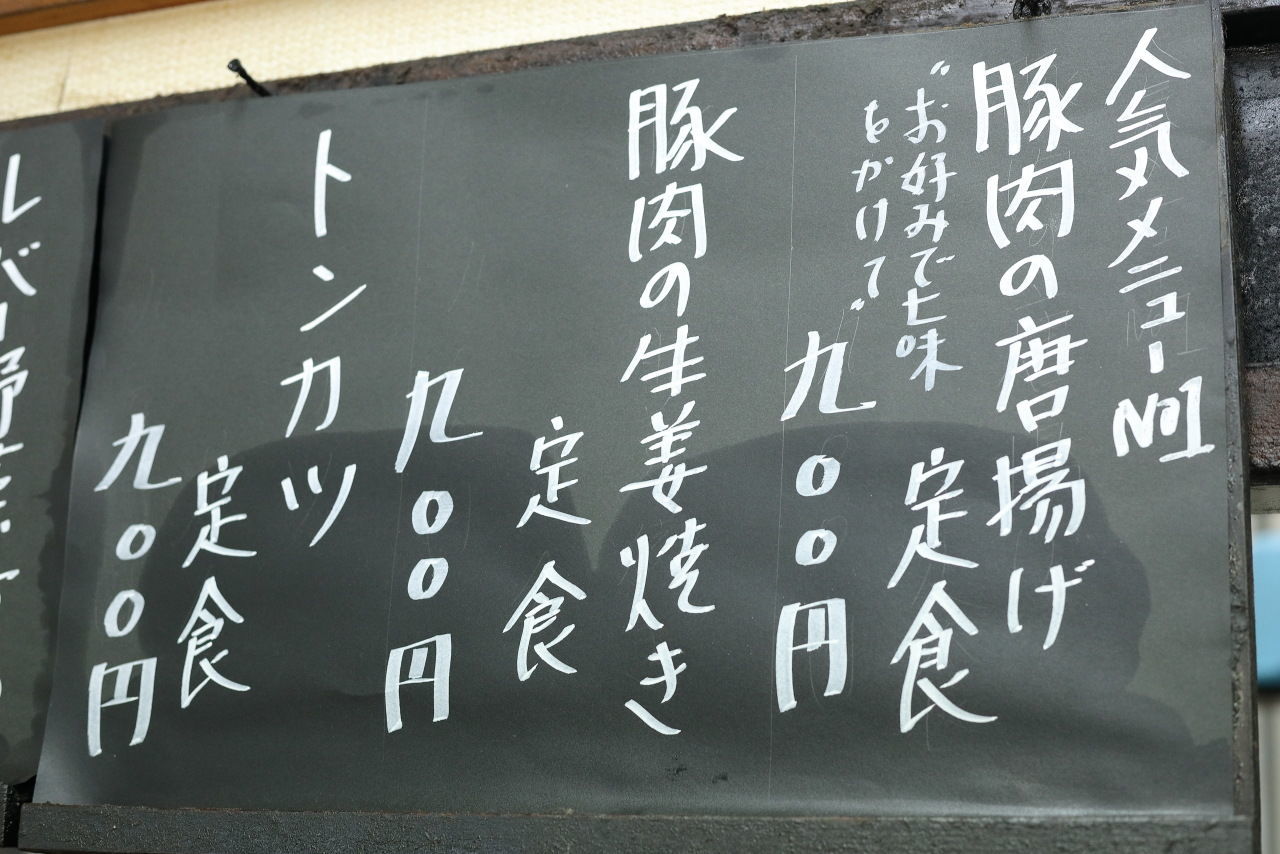 人気メメニューNo1
豚肉の唐揚げ
定食
“お好みで七味
をかけて”
九〇〇円
豚肉の生姜焼き
定食
九〇〇円
トンカツ
定食
九〇〇円